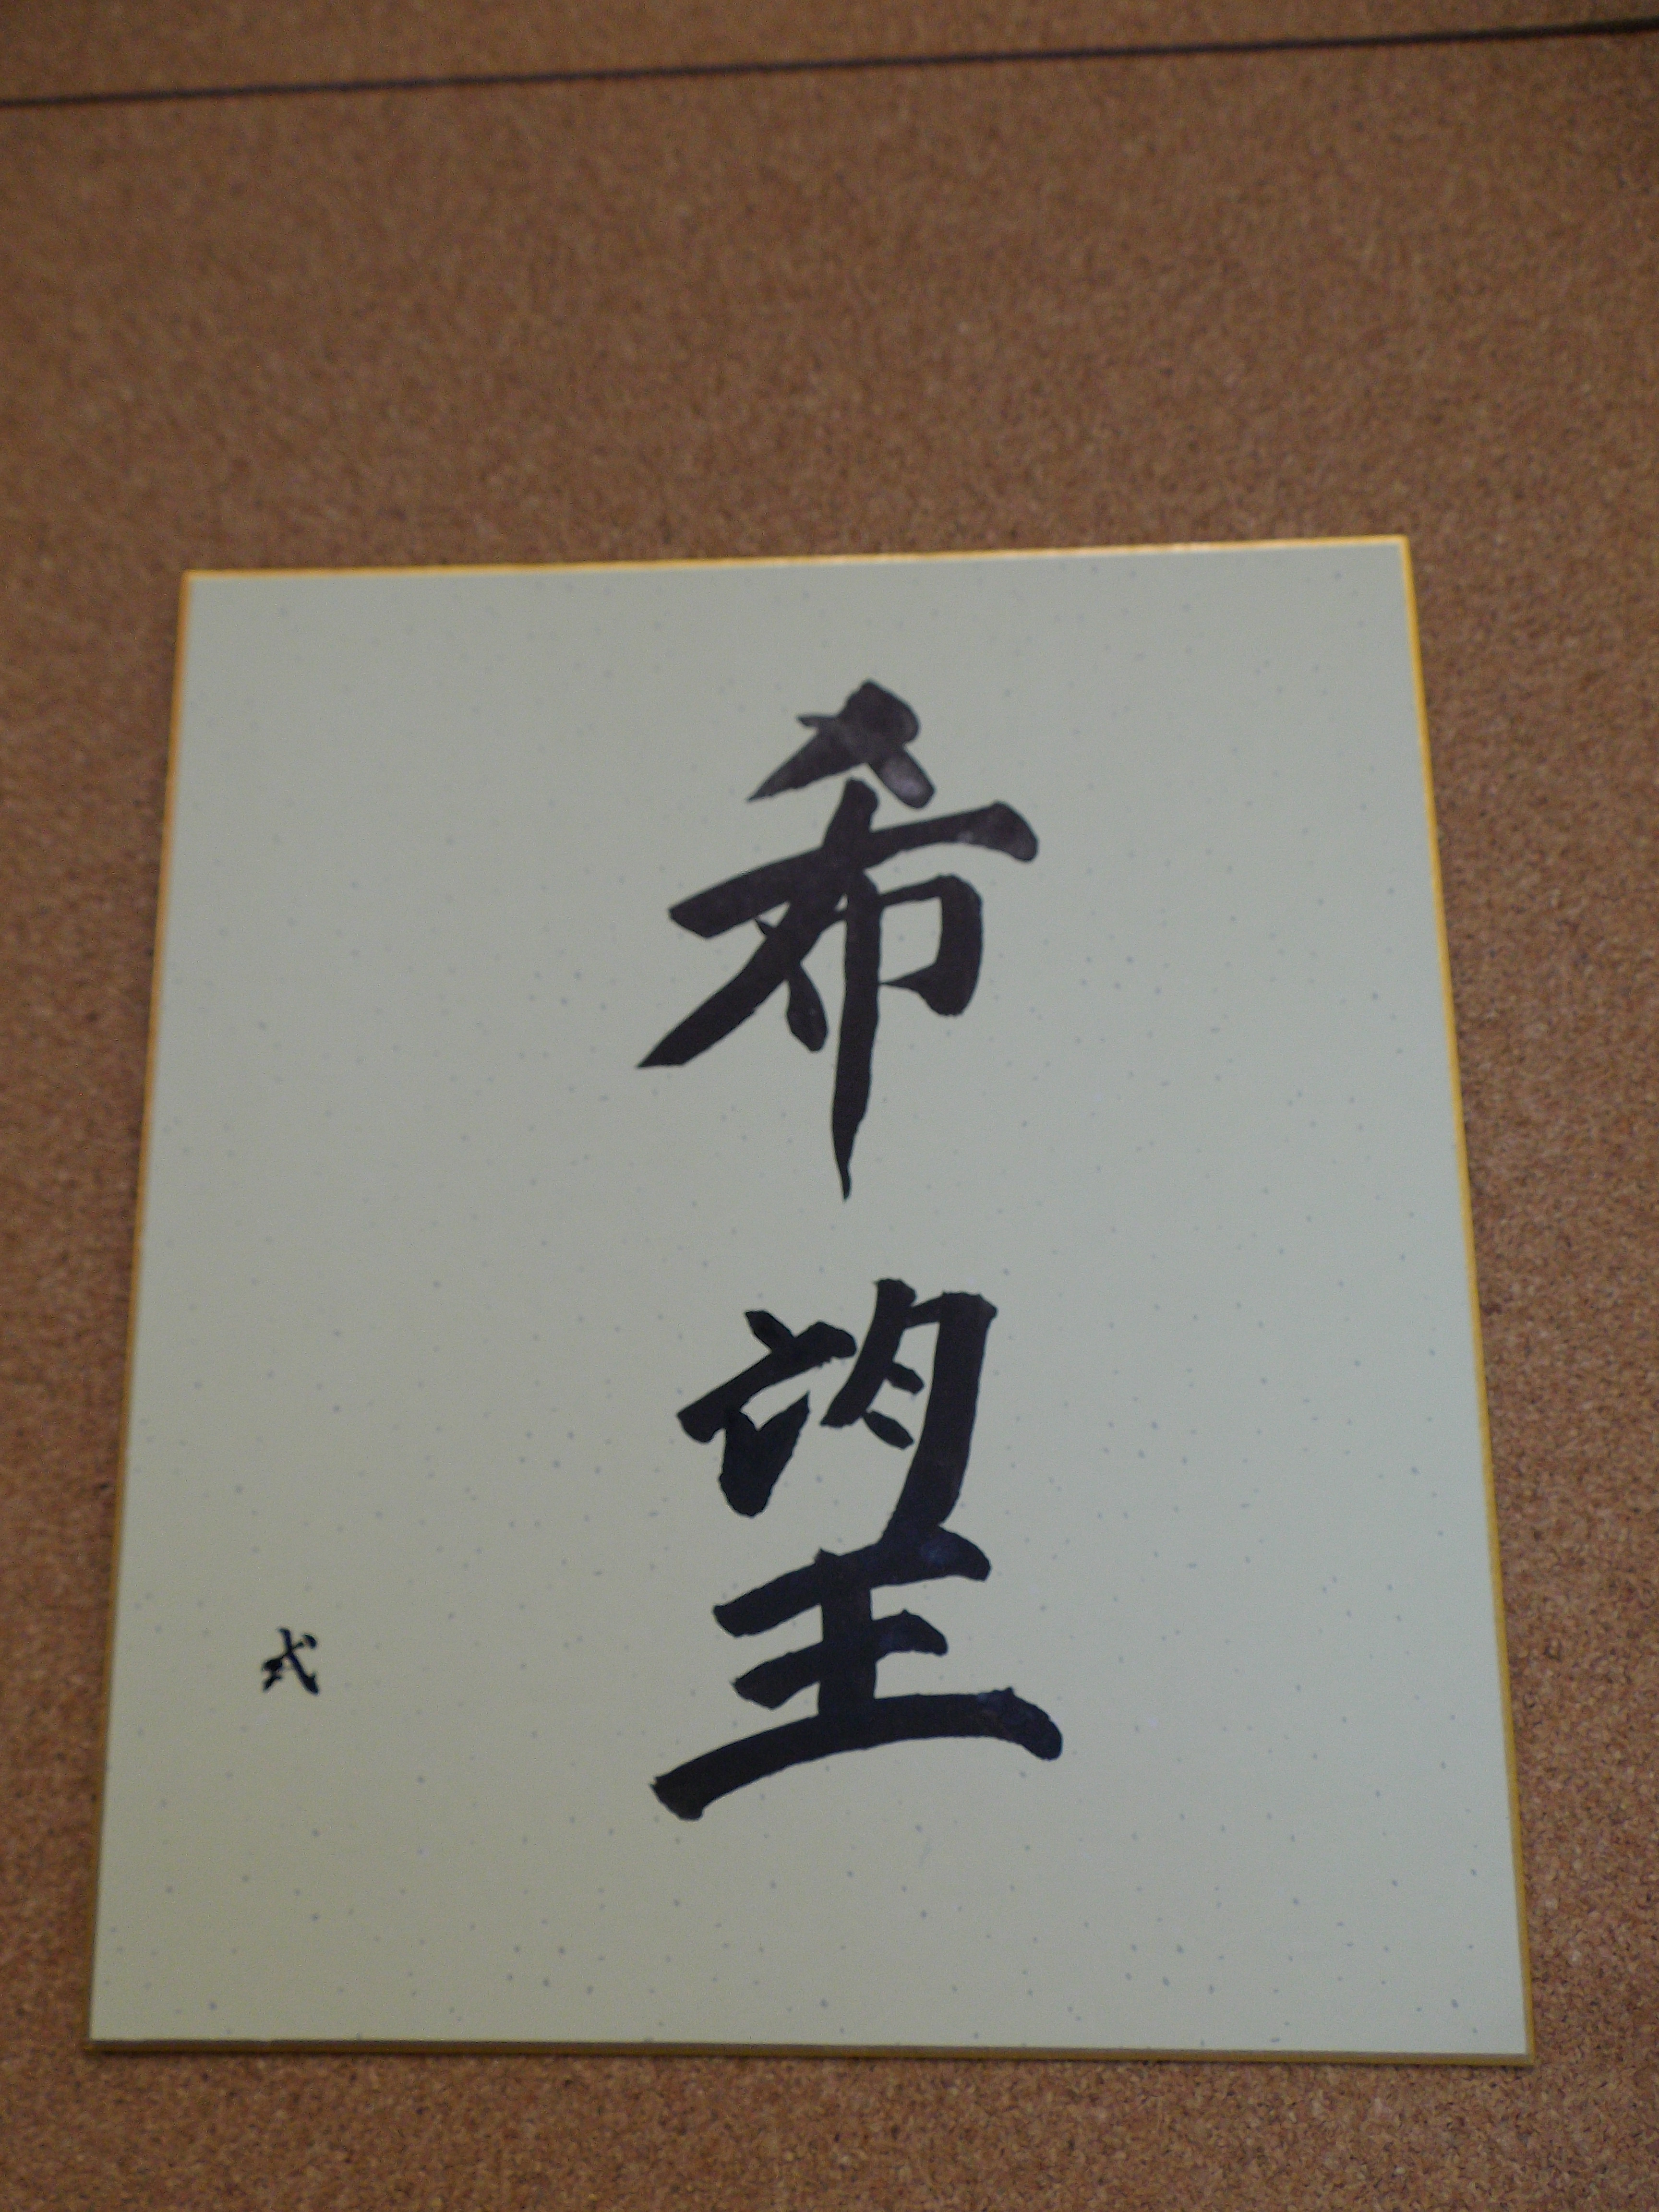 希望
式